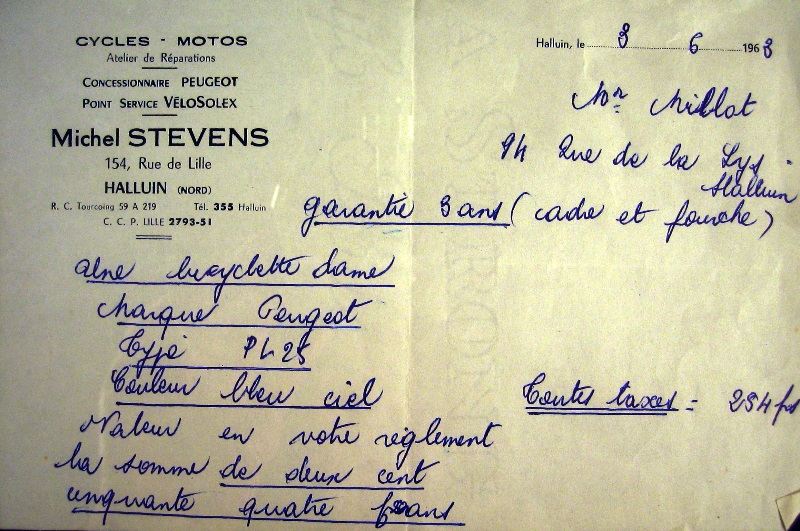 CYCLES - MOTOS
Atelier de Réparations
CONCESSIONNAIRE PEUGEOT
POINT SERVICE VÉLOSOLEX
Michel STEVENS
154, Rue de Lille
HALLUIN (NORD)
R. C. Tourcoing 59 A 219 Tél. 355 Halluin
C. C. P. LILLE 2793-51
Halluin, le 8 6 1963
Mr Millot
94 Rue de la Lys
Halluin
garantie 3 ans (cadre et fourche)
Une bicyclette dame
Marque Peugeot
Type PL 25
Couleur bleu ciel
Toutes taxes = 254 frs
Valeur en votre règlement
la somme de deux cent
cinquante quatre frans